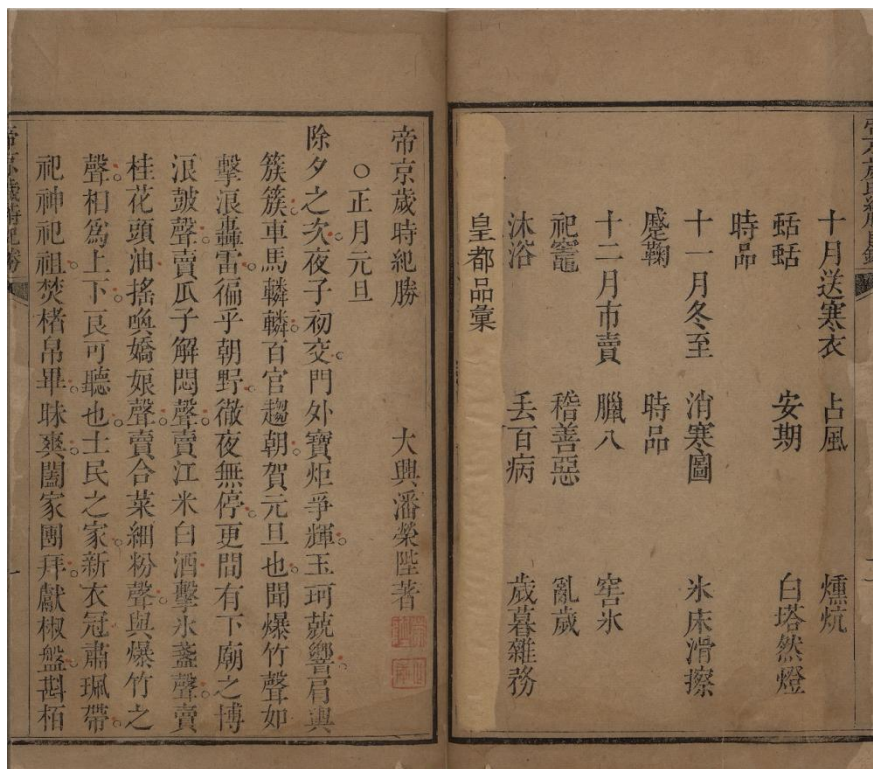 十月送寒衣 占風 燻炕
蛞蛞 安期 白塔然燈
時品
十一月冬至 消寒圖 氷床滑擦
蹙鞠 時品
十二月市賣 臘八 窖氷
祀竈 稽善惡 亂歲
沐浴 丟百病 歲暮雜務
皇都品彙
帝京歲時紀勝 大興潘榮陛著
○正月元旦
除夕之次夜子初交門外寶炬爭輝玉珂競響肩輿
簇簇車馬轔轔百官趨朝賀元旦也聞爆竹聲如
擊浪轟雷徧乎朝野徹夜無停更間有下廟之博
浪皷聲賣瓜子解悶聲賣江米白酒擊氷盞聲賣
桂花頭油搖喚嬌娘聲賣合菜細粉聲與爆竹之
聲相爲上下良可聽也士民之家新衣冠肅珮帶
祀神祀祖焚楮帛畢昧爽闔家團拜獻椒盤斟栢
帝京歲時紀勝 一